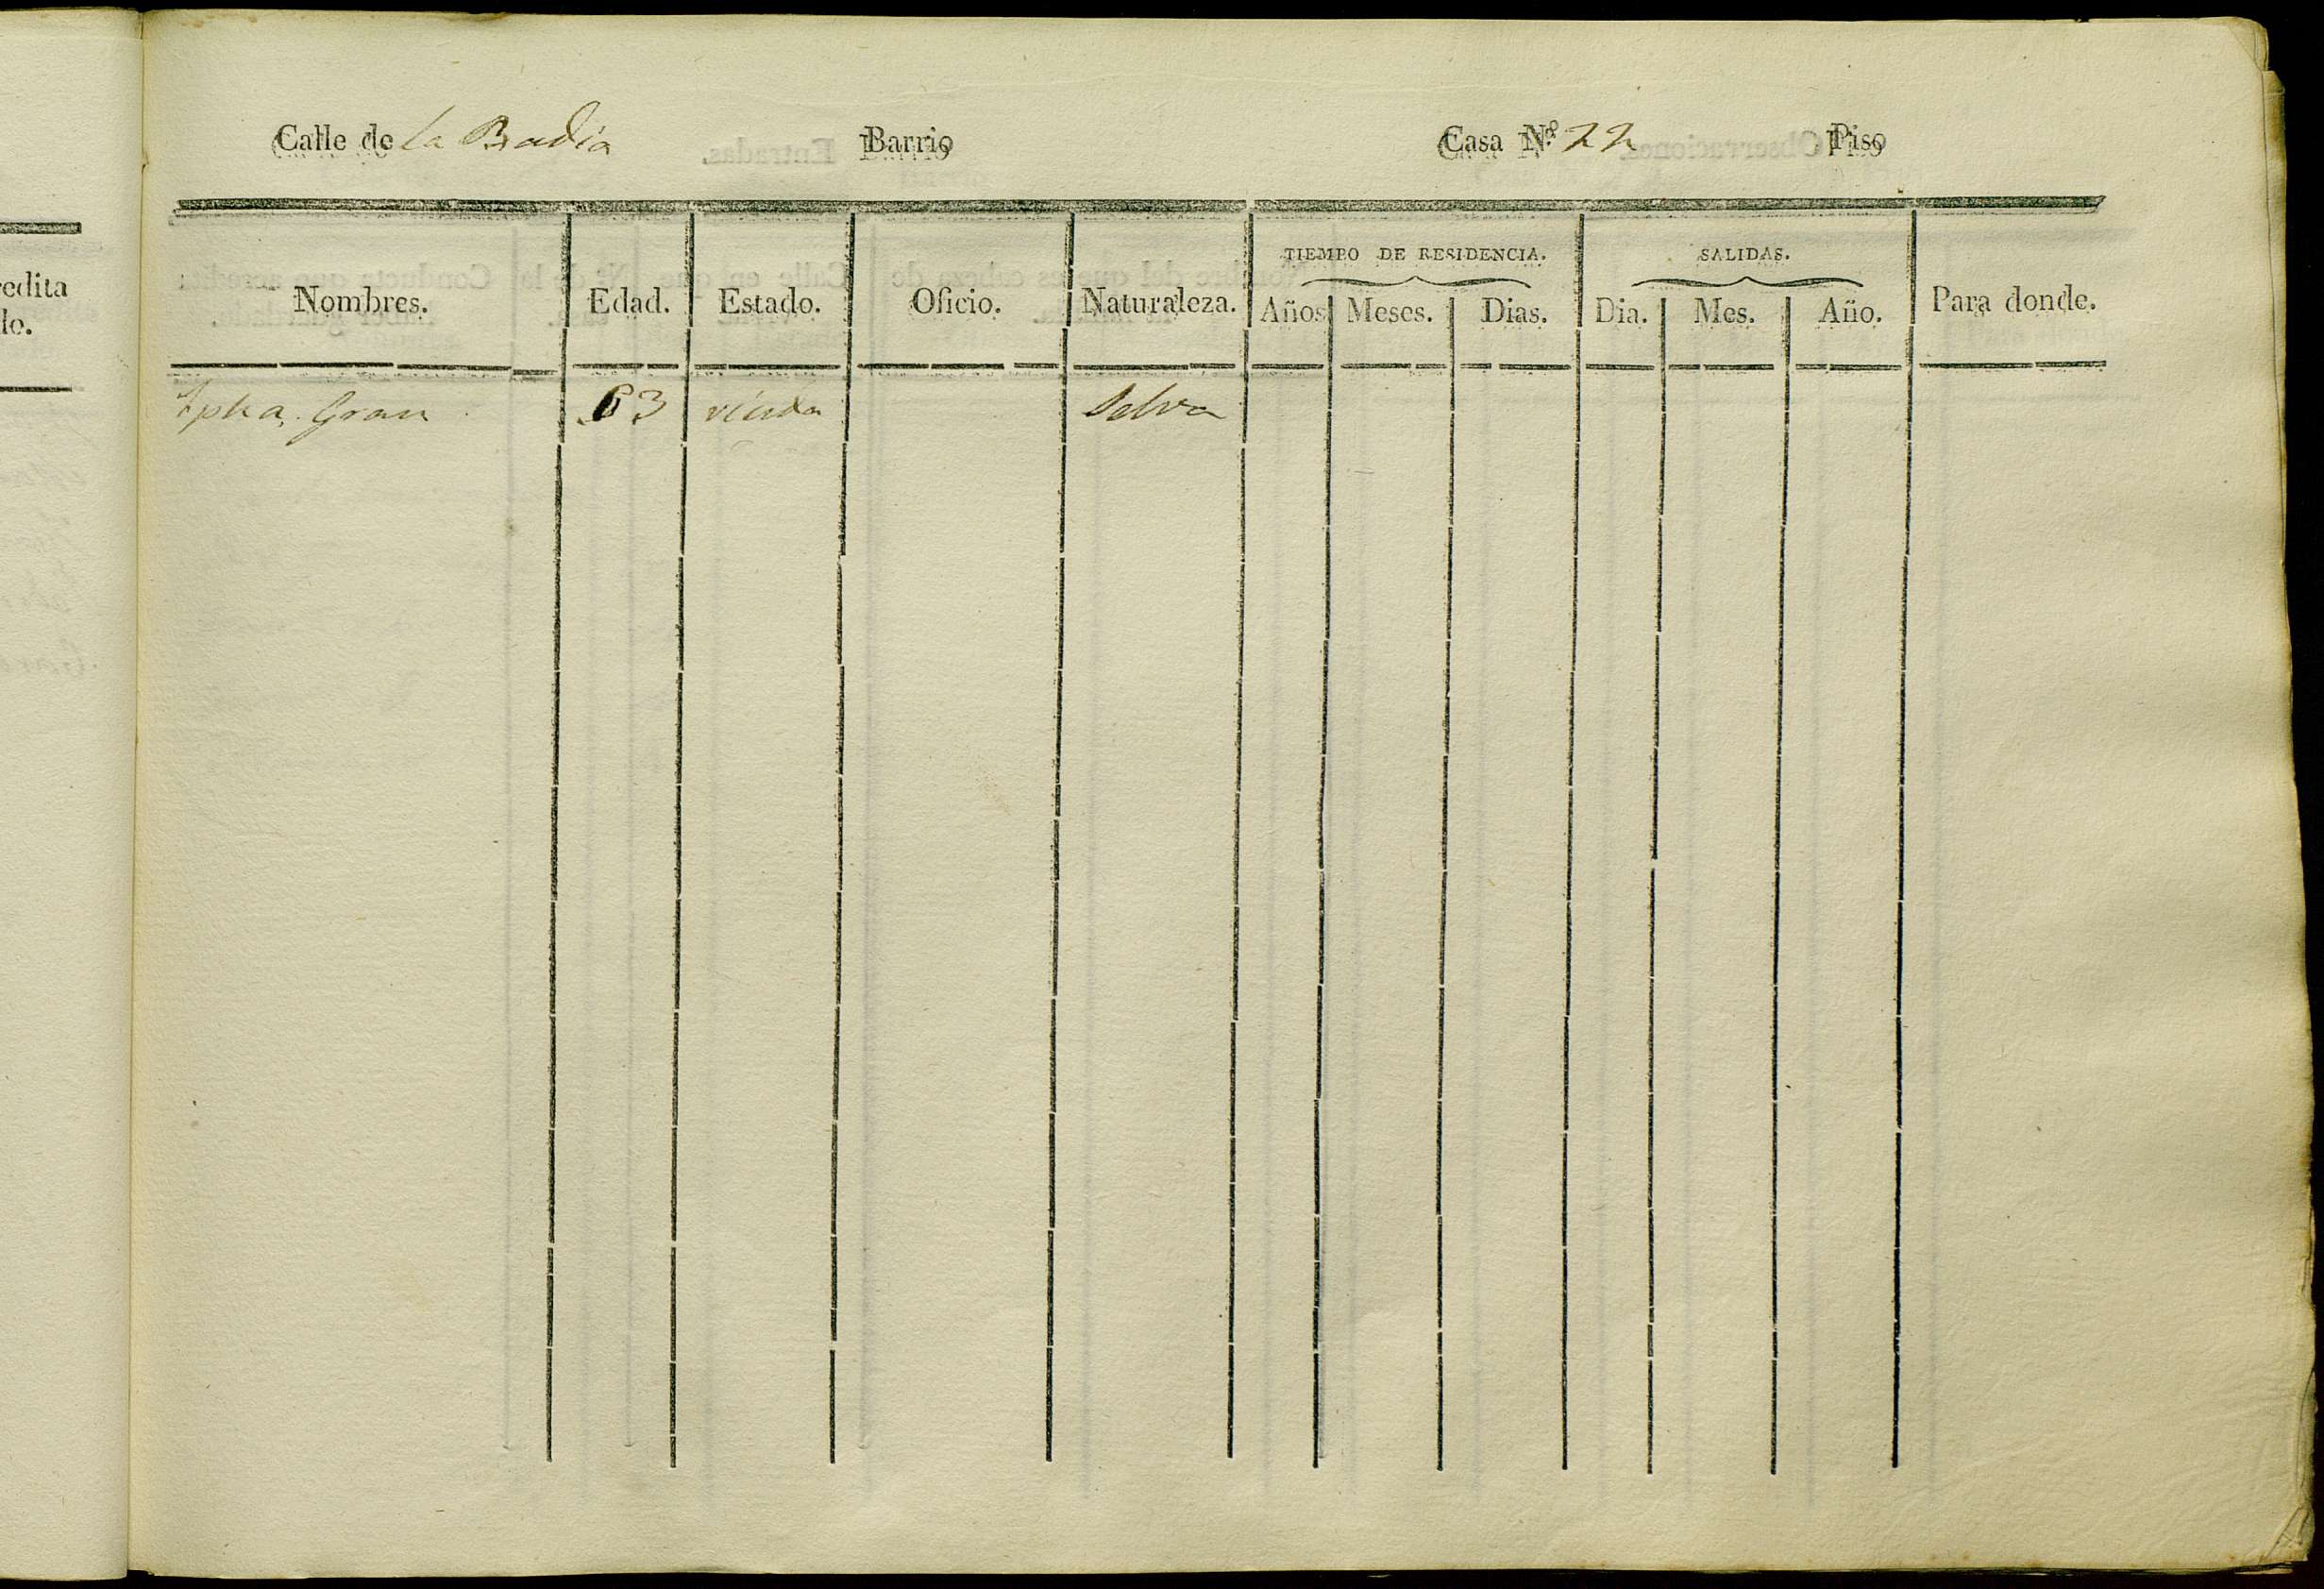 Calle de la Badia Barrio Casa N.º 22 Piso
redita
do.
Nombres. Edad. Estado. Oficio. Naturaleza. TIEMPO DE RESIDENCIA. Años Meses. Dias. SALIDAS. Dia. Mes. Año. Para donde.
Grau 63 viuda Selva